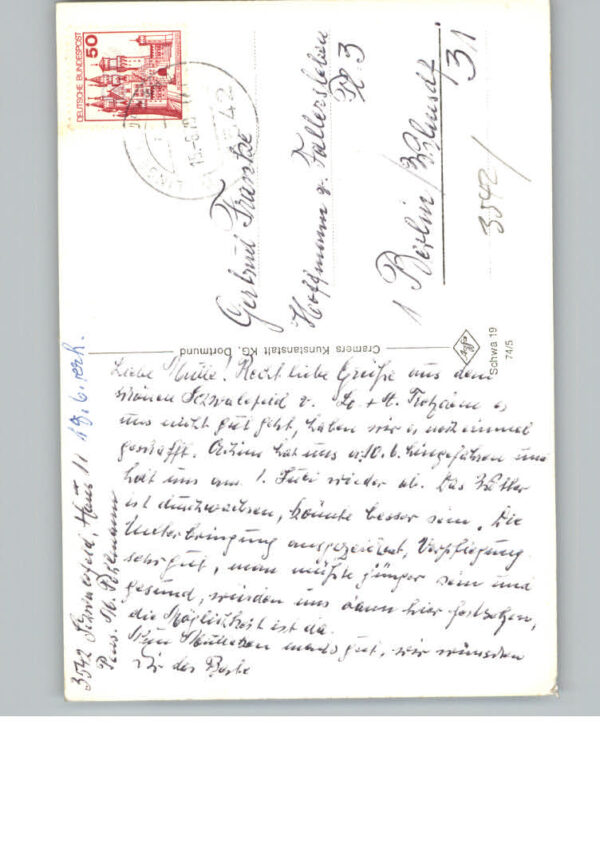 DEUTSCHE BUNDESPOST
50
Gertrud Frantzke
Hoffmann v. Fallersleben
Pl 3
1 Berlin/
31
3542/
Cramers Kunstanstalt KG, Dortmund
Schwa 19
74/5
3542 Schwalefeld, Haus 11
Pens.
Recht liebe Grüße aus dem
schönen Schwalefeld v. + Trotzdem es
uns nicht gut geht, haben wir es noch einmal
geschafft. Achim hat uns a. 10.6. hingefahren und
holt uns am 1. Juli wieder ab. Das Wetter
ist durchwachsen, könnte besser sein. Die
Unterbringung ausgezeichnet, Verpflegung
sehr gut, man müßte jünger sein und
gesund, würden uns dann hier festsetzen,
die Möglichkeit ist da.
gut, wir wünschen
Dir das Beste